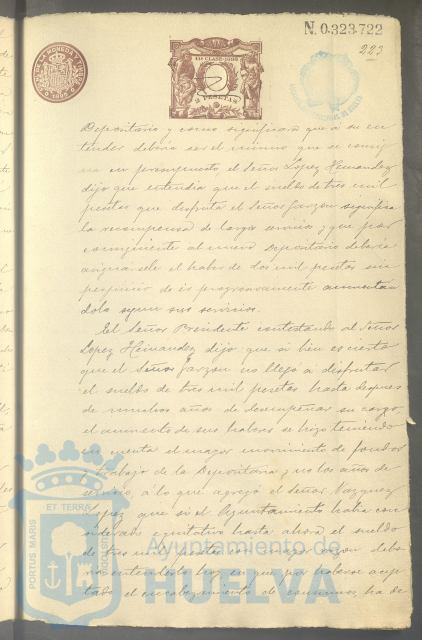 N. 0.323.722
223
11ª CLASE-1898
2 PESETAS
Depositario y como significara que á su en-
tender debería ser el mismo que se consig-
na en presupuesto, el Señor López Hernández
dijo que entendía que el sueldo de tres mil
pesetas que disfruta el Señor Garzón significa
la recompensa de largos servicios y que por
consiguiente al nuevo Depositario debería
asignarsele el haber de dos mil pesetas sin
perjuicio de ir progresivamente aumentan
dolo segun sus servicios.
El Señor Presidente contestando al Señor
López Hernández dijo que si bien es cierto
que el Señor Garzón no llegó a disfrutar
el sueldo de tres mil pesetas hasta despues
de muchos años de desempeñar su cargo,
el aumento de sus haberes se hizo teniendo
en cuenta el mayor movimiento de fondos
y trabajo de la Depositaría y no los años de
servicio, á lo que agregó el Señor Vazquez
López que si el Ayuntamiento había con
siderado equitativo hasta ahora el sueldo
de tres mil pesetas con mayor razon debe
rá entenderlo hoy en que por haberse acep
tado el encabezamiento de consumos, ha de
PORTUS MARIS
ET TERRAE
CUSTODIA
Ayuntamiento de
HUELVA